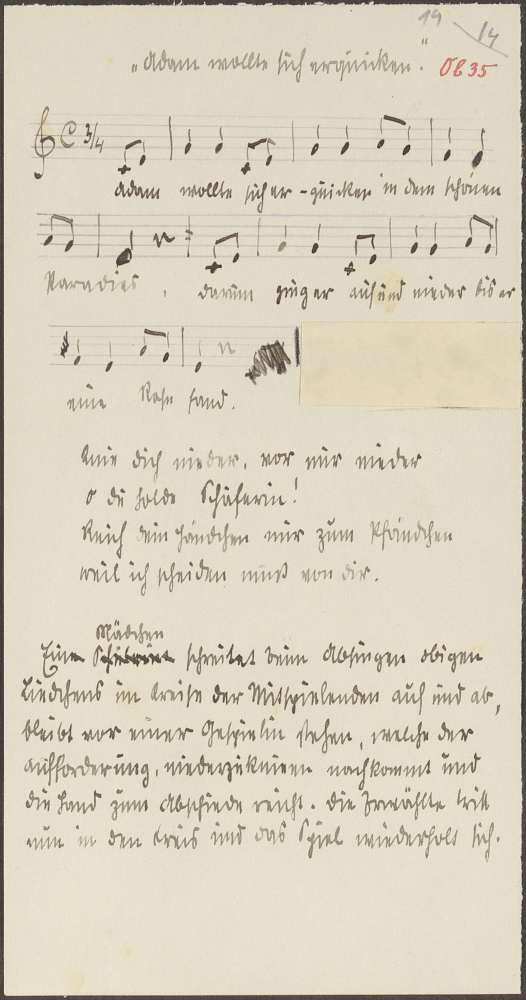 19 14
„Adam wollte sich erquicken." Ob 35
C 3/4
Adam wollte sich er-quicken in dem schönen
Paradies, darum ging er auf und nieder bis er
eine Rose fand.
Knie dich nieder, vor mir nieder
o du holde Schäferin!
Reich dein Händchen mir zum Pfändchen
weil ich scheiden muß von dir.
Mädchen
Ein schreitet beim Absingen obigen
Liedchens im Kreise der Mitspielenden auf und ab,
bleibt vor einer Gespielin stehen, welche der
Aufforderung, niederzuknieen nachkommt und
die Hand zum Abschiede reicht. Die Erwählte tritt
nun in den Kreis und das Spiel wiederholt sich.